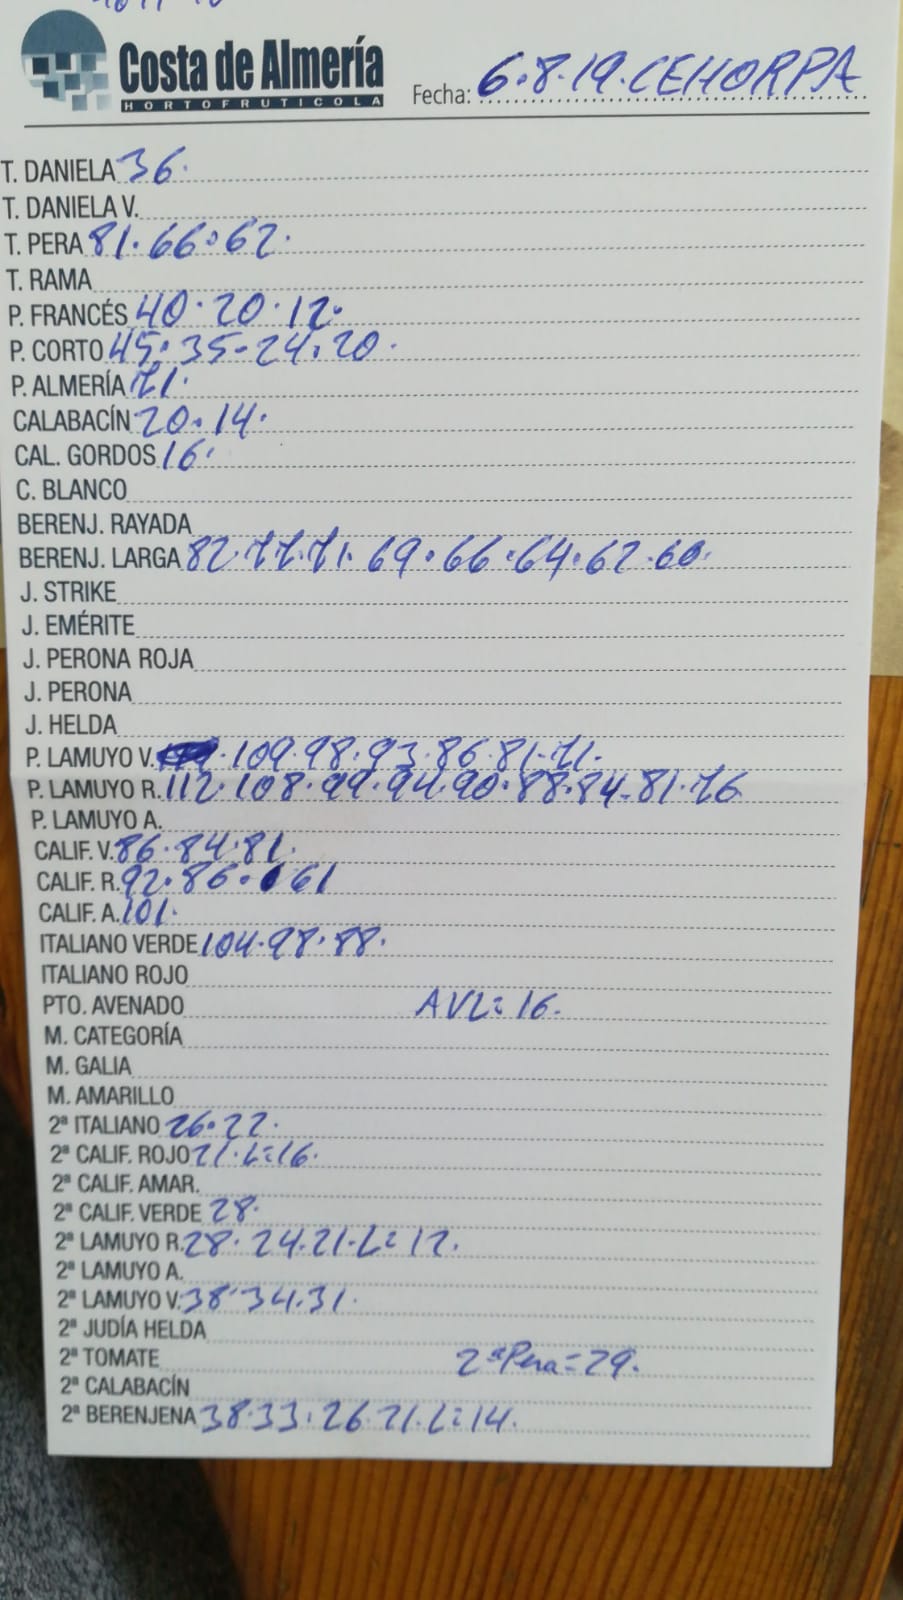 Costa de Almería
HORTOFRUTICOLA
Fecha: 6.8.19.CEHORPA
T. DANIELA 36.
T. DANIELA V.
T. PERA 81.66.62.
T. RAMA
P. FRANCÉS 40.20.12.
P. CORTO 45.35.24.20.
P. ALMERÍA 71.
CALABACÍN 20.14.
CAL. GORDOS 16.
C. BLANCO
BERENJ. RAYADA
BERENJ. LARGA 82.77.71.69.66.64.62.60.
J. STRIKE
J. EMÉRITE
J. PERONA ROJA
J. PERONA
J. HELDA
P. LAMUYO V. .109.98.93.86.81.71.
P. LAMUYO R. 112.108.99.94.90.88.84.81.76
P. LAMUYO A.
CALIF. V. 86.84.81.
CALIF. R. 92.86. 61
CALIF. A. 101.
ITALIANO VERDE 104.98.88.
ITALIANO ROJO
PTO. AVENADO AVL=16.
M. CATEGORÍA
M. GALIA
M. AMARILLO
2ª ITALIANO 26.22.
2ª CALIF. ROJO 21.L=16.
2ª CALIF. AMAR.
2ª CALIF. VERDE 28.
2ª LAMUYO R. 28.24.21.L=12.
2ª LAMUYO A.
2ª LAMUYO V. 38.34.31.
2ª JUDÍA HELDA
2ª TOMATE 2ªPera=29.
2ª CALABACÍN
2ª BERENJENA 38.33.26.21.L=14.